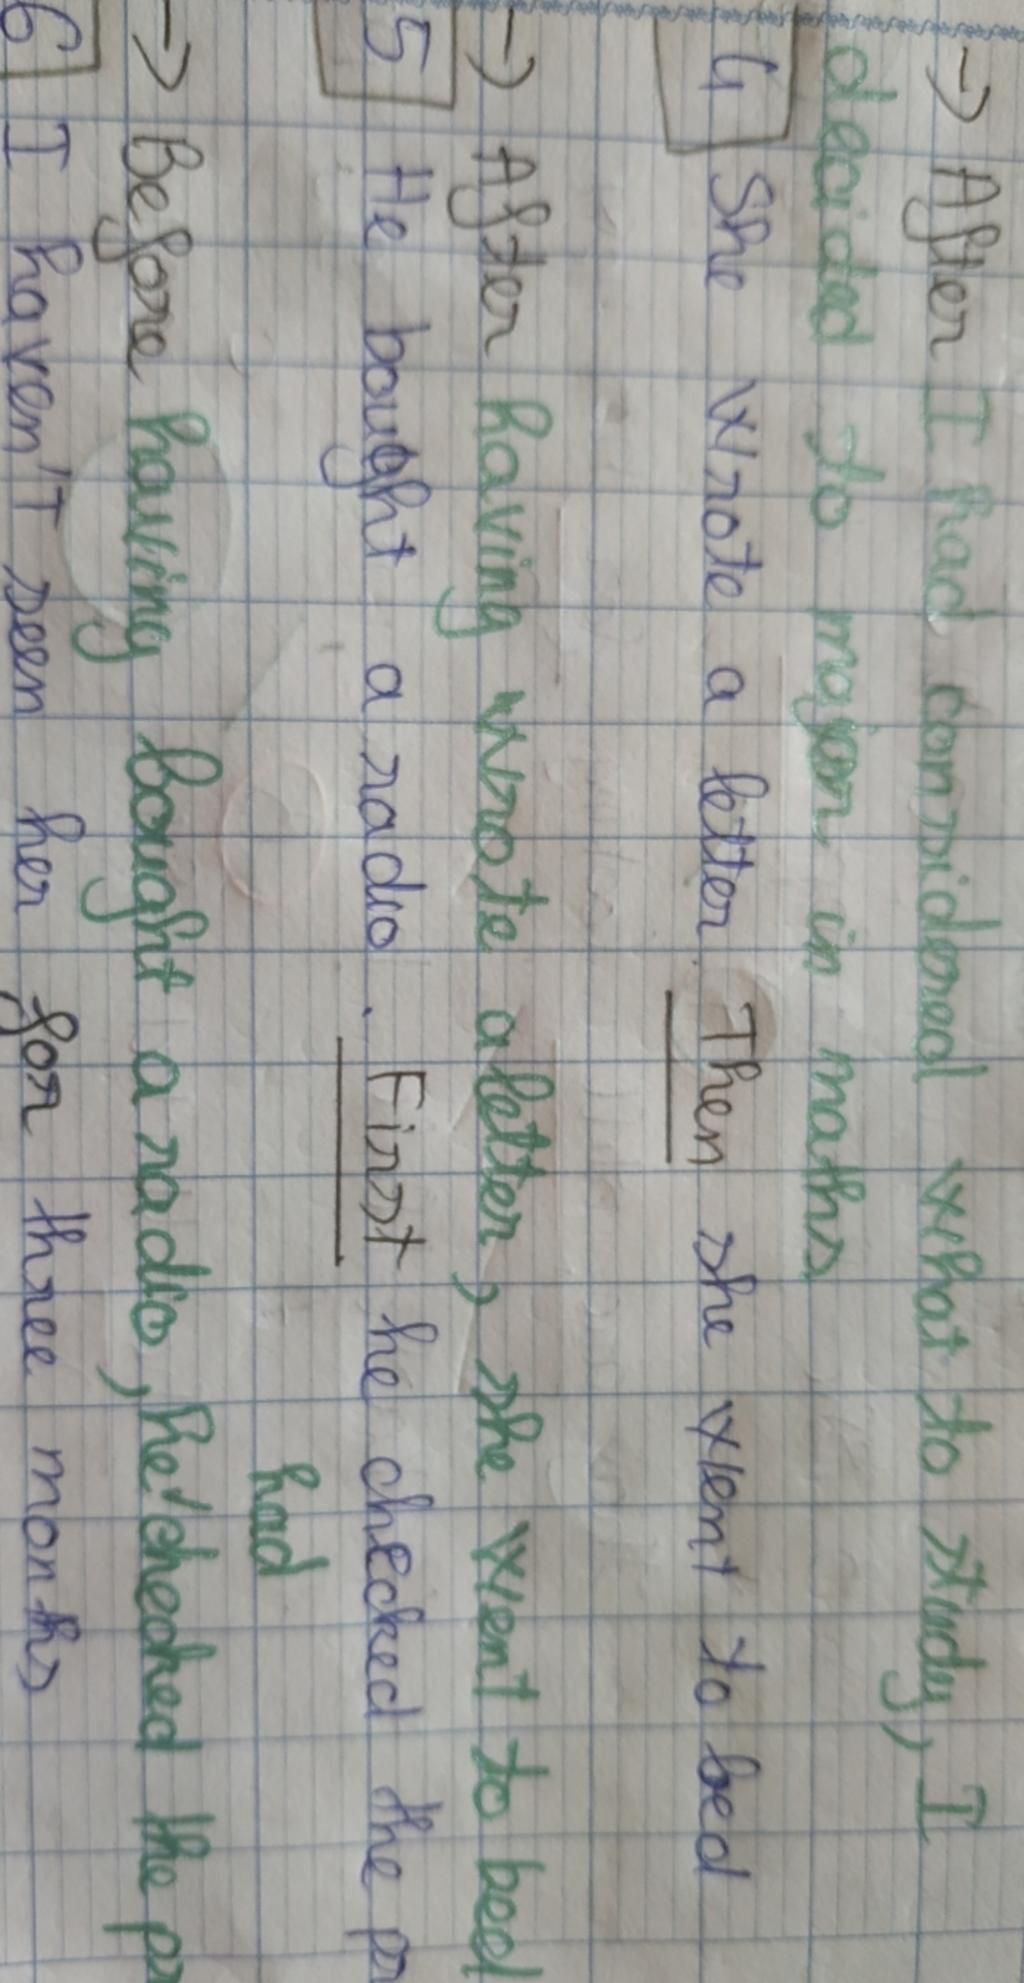 → After I had considered what to study, I
decided to major in maths
4 She wrote a letter Then she went to bed
→ After having wrote a letter, she went to bed
5 He bought a radio. First he checked the
had
→ Before having bought a radio, he checked the
6 I haven't seen her for three months